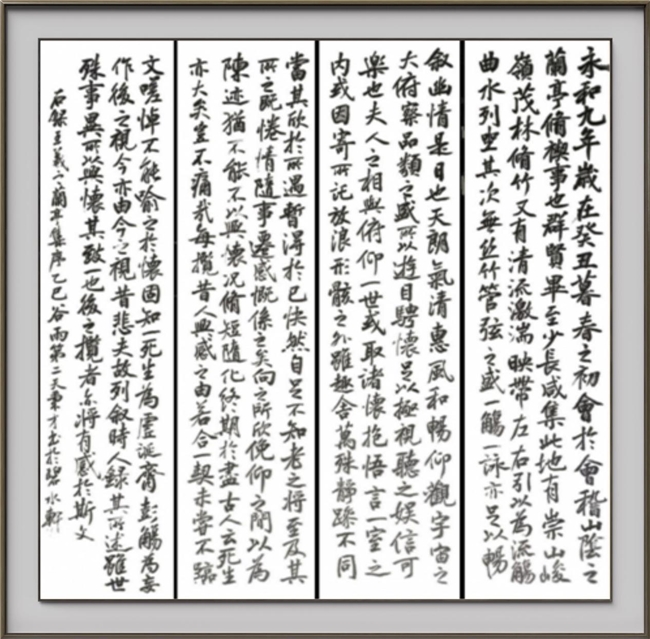 永和九年歲在癸丑暮春之初會於會稽山陰之
蘭亭脩禊事也群賢畢至少長咸集此地有崇山峻
嶺茂林脩竹又有清流激湍映帶左右引以為流觴
曲水列坐其次無絲竹管弦之盛一觴一詠亦足以暢
敘幽情是日也天朗氣清惠風和暢仰觀宇宙之
大俯察品類之盛所以遊目騁懷足以極視聽之娛信可
樂也夫人之相與俯仰一世或取諸懷抱悟言一室之
內或因寄所託放浪形骸之外雖趣舍萬殊靜躁不同
當其欣於所遇暫得於己快然自足不知老之將至及其
所之既惓情隨事遷感慨係之矣向之所欣俛仰之間以為
陳迹猶不能不以興懷況脩短隨化終期於盡古人云死生
亦大矣豈不痛哉每攬昔人興感之由若合一契未嘗不臨
文嗟悼不能喻之於懷固知一死生為虛誕齊彭殤為妄
作後之視今亦由今之視昔悲夫故列敘時人錄其所述雖世
殊事異所以興懷其致一也後之攬者亦將有感於斯文
右錄王羲之蘭亭集序乙巳谷雨第二天秉才書於碧水軒